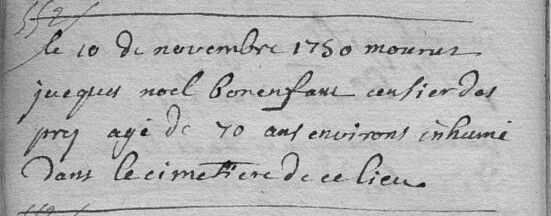 552
le 10 de novembre 1750 mourut
jacques noel bonenfant censier des
prez agé de 70 ans environs inhumé
Dans le cimetiere de ce lieu.